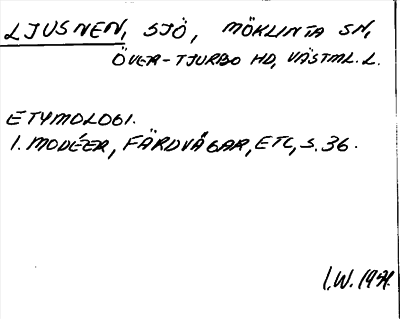 LJUSNEN, SJÖ, MÖKLINTA SN,
ÖVER-TJURBO HD, VÄSTML. L.
ETYMOLOGI.
I. MODÉER, FÄRDVÄGAR, ETC, S. 36.
I.W. 1971.